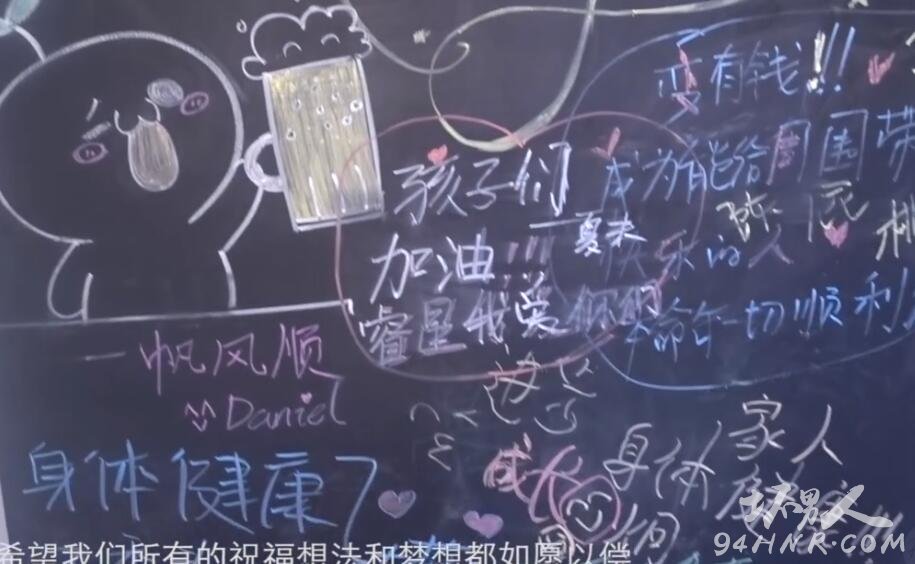 变有钱!!!
孩子们
成为能给周围带
加油!!!
一夏未
快乐的人
睿星我爱你们
本命年一切顺利
一帆风顺
Daniel
身体健康
成长
家人
身体
希望我们所有的祝福想法和梦想都如愿以偿
坏男人
94HNR.COM